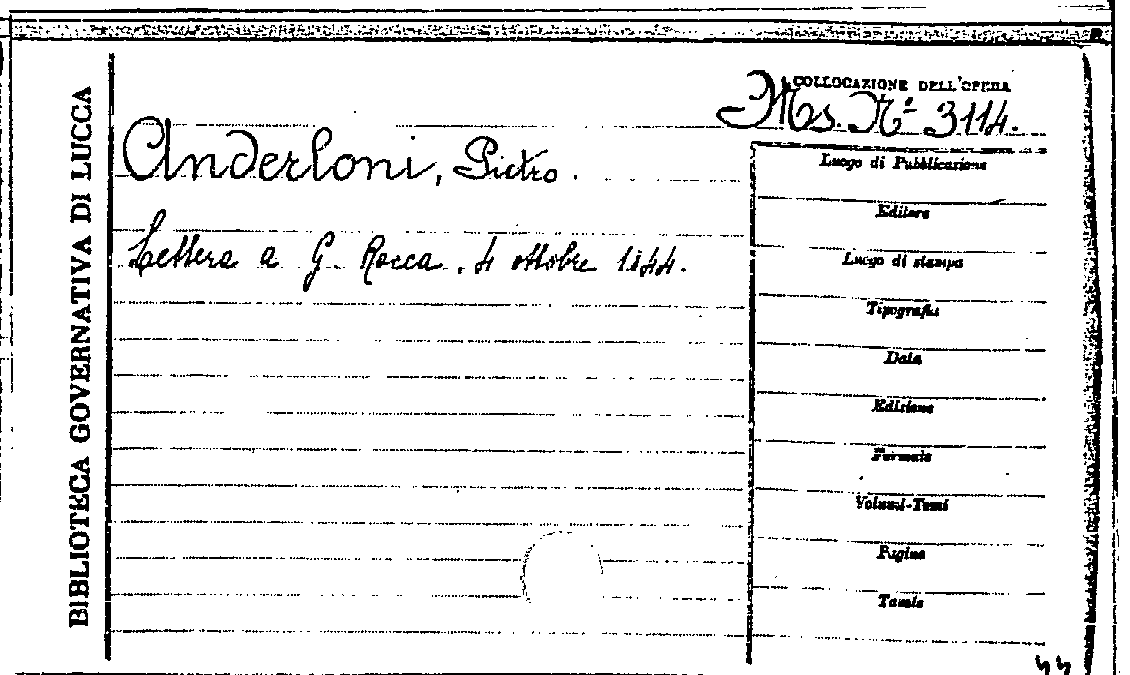 BIBLIOTECA GOVERNATIVA DI LUCCA
COLLOCAZIONE DELL'OPERA
Ms. Nº 3114.
Anderloni, Pietro.
Lettera a G. Rocca. 4 ottobre 1844.
Luogo di Pubblicazione
Editore
Luogo di stampa
Tipografia
Data
Edizione
Formato
Volumi-Tomi
Pagine
Tavole